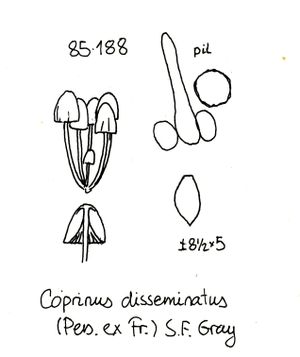 85·188
pil
±8½×5
Coprinus disseminatus
(Pers. ex Fr.) S.F. Gray